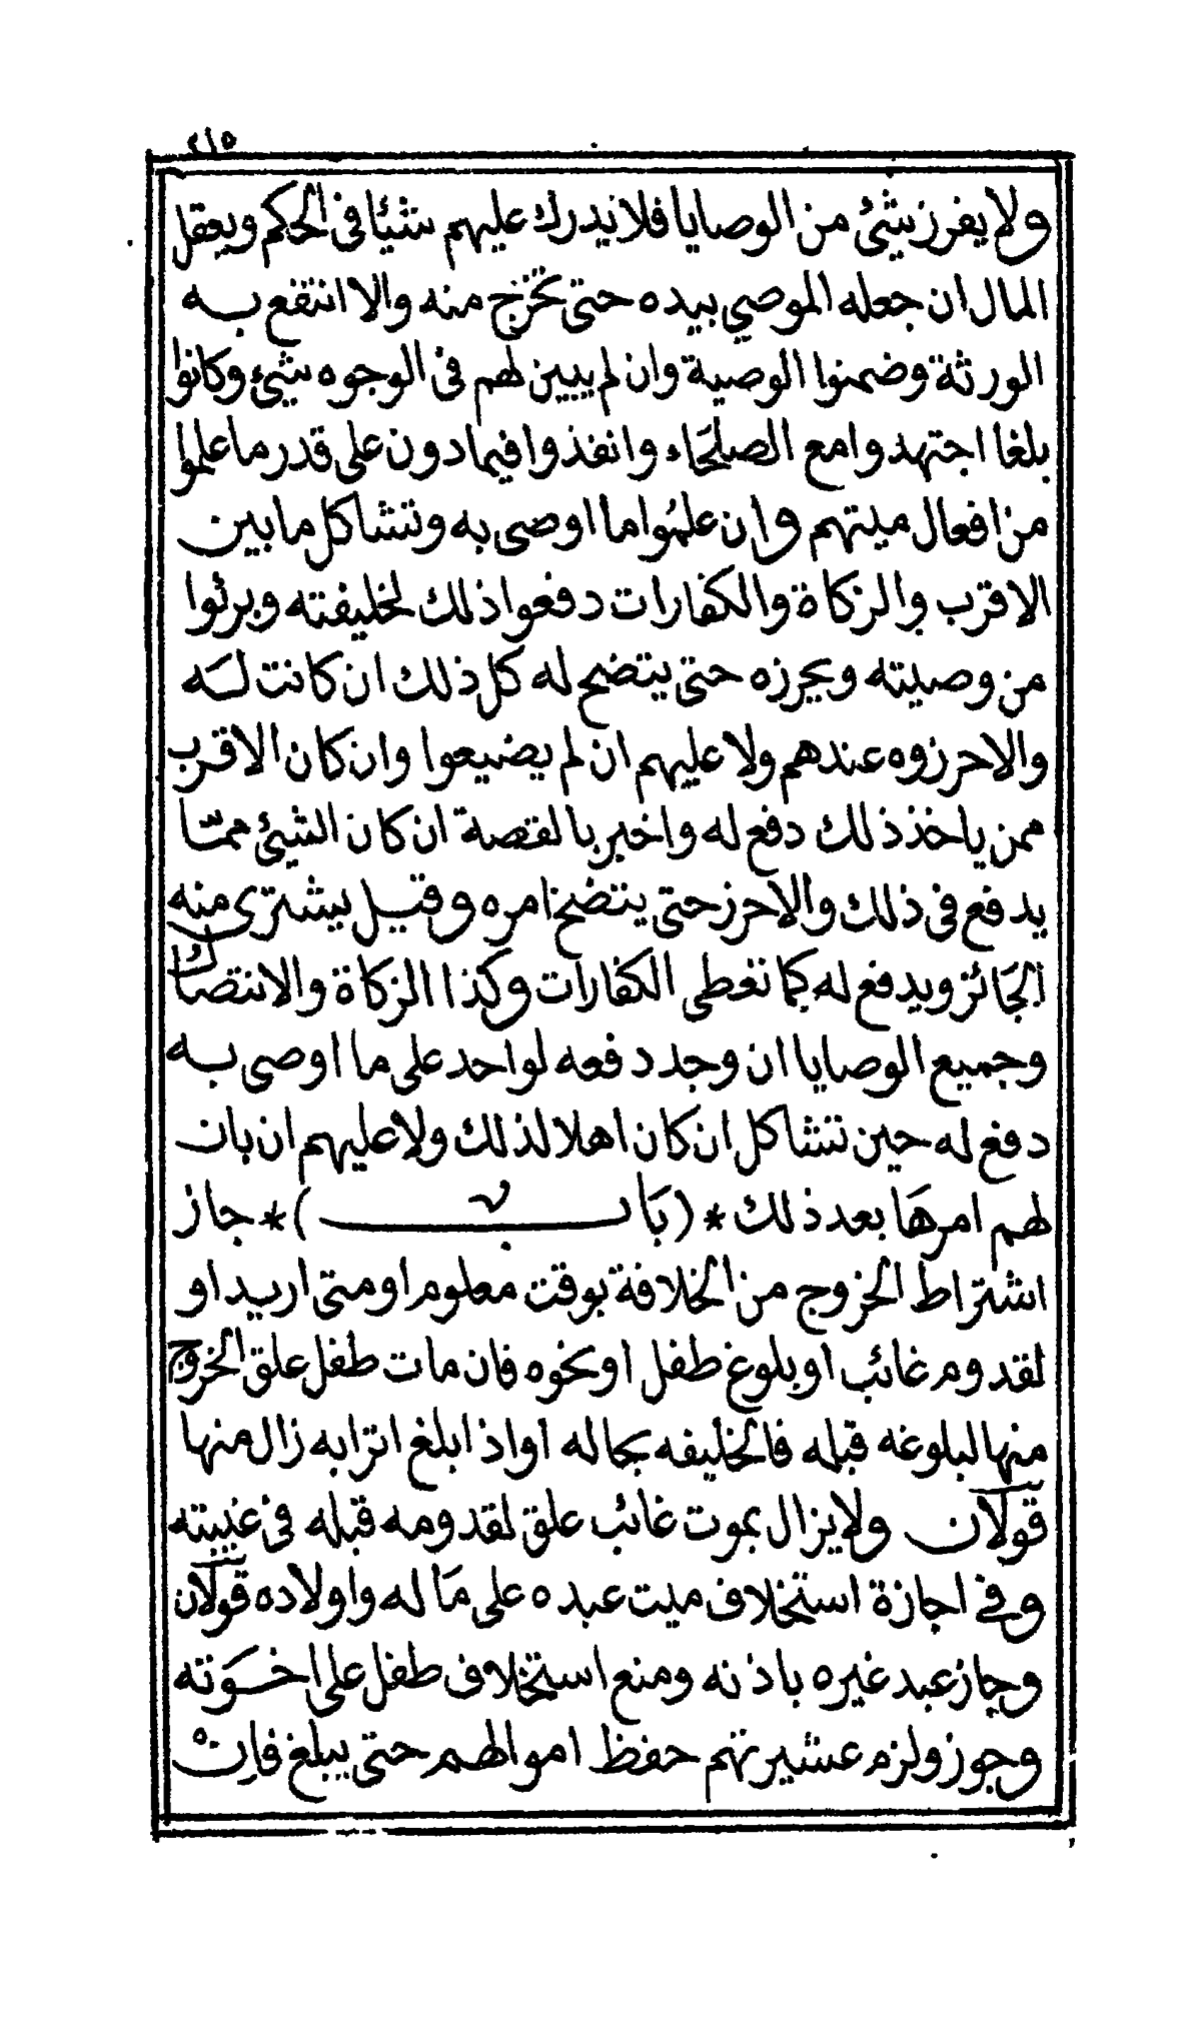 ٢١٥
ولا يفرز شيئ من الوصايا فلا يدرك عليهم شئيا فى الحكم ويعقل
المال ان جعله الموصي بيده حتى تخرج منه والا انتفع به
الورثة وضمنوا الوصية وان لم يبين لهم فى الوجوه شيئ وكانوا
بلغا اجتهدوا مع الصلحاء وانفذوا فيما دون على قدر ما علموا
من افعال ميتهم وان علموا ما اوصى به وتشاكل ما بين
الاقرب والزكاة والكفارات دفعوا ذلك لخليفته وبرئوا
من وصيته ويحرزه حتى يتضح له كل ذلك ان كانت له
والا حرزوه عندهم ولا عليهم ان لم يضيعوا وان كان الاقرب
ممن ياخذ ذلك دفع له واخبر بالقصة ان كان الشيئ ممّا
يدفع فى ذلك والا حرز حتى يتضح امره وقيل يشترى منه
الجائز ويدفع له كما تعطى الكفارات وكذا الزكاة والانتصال
وجميع الوصايا ان وجد دفعه لواحد على ما اوصى به
دفع له حين تتشاكل ان كان اهلا لذلك ولا عليهم ان بان
لهم امرها بعد ذلك * (باب) * جاز
اشتراط الخروج من الخلافة بوقت معلوم او متى اريد او
لقدوم غائب او بلوغ طفل او نحوه فان مات طفل علق الخروج
منها لبلوغه قبله فالخليفه بحاله او اذا بلغ اترابه زال منها
قولان ولا يزال بموت غائب علق لقدومه قبله فى غيبته
وفي اجازة استخلاف ميت عبده على ماله واولاده قولان
وجاز عبد غيره باذنه ومنع استخلاف طفل على اخوته
وجوز ولزم عشيرتهم حفظ اموالهم حتى يبلغ فان